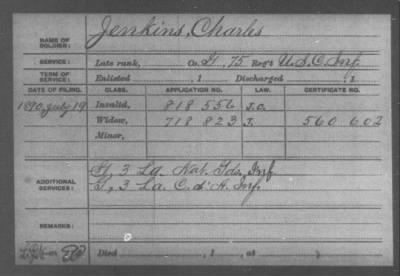 NAME OF SOLDIER: Jenkins, Charles
SERVICE: Late rank, Co. G, 75 Reg't U.S.C. Inf.
TERM OF SERVICE: Enlisted , 1 Discharged , 1
DATE OF FILING. CLASS. APPLICATION NO. LAW. CERTIFICATE NO.
1890, July 19 Invalid, 818 556 J.O.
Widow, 718 823 J. 560 602
Minor,
ADDITIONAL SERVICES: G, 3 La. Nat. Gds. Inf.
G, 3 La. C. d'A. Inf.
REMARKS:
Died , 1 , at